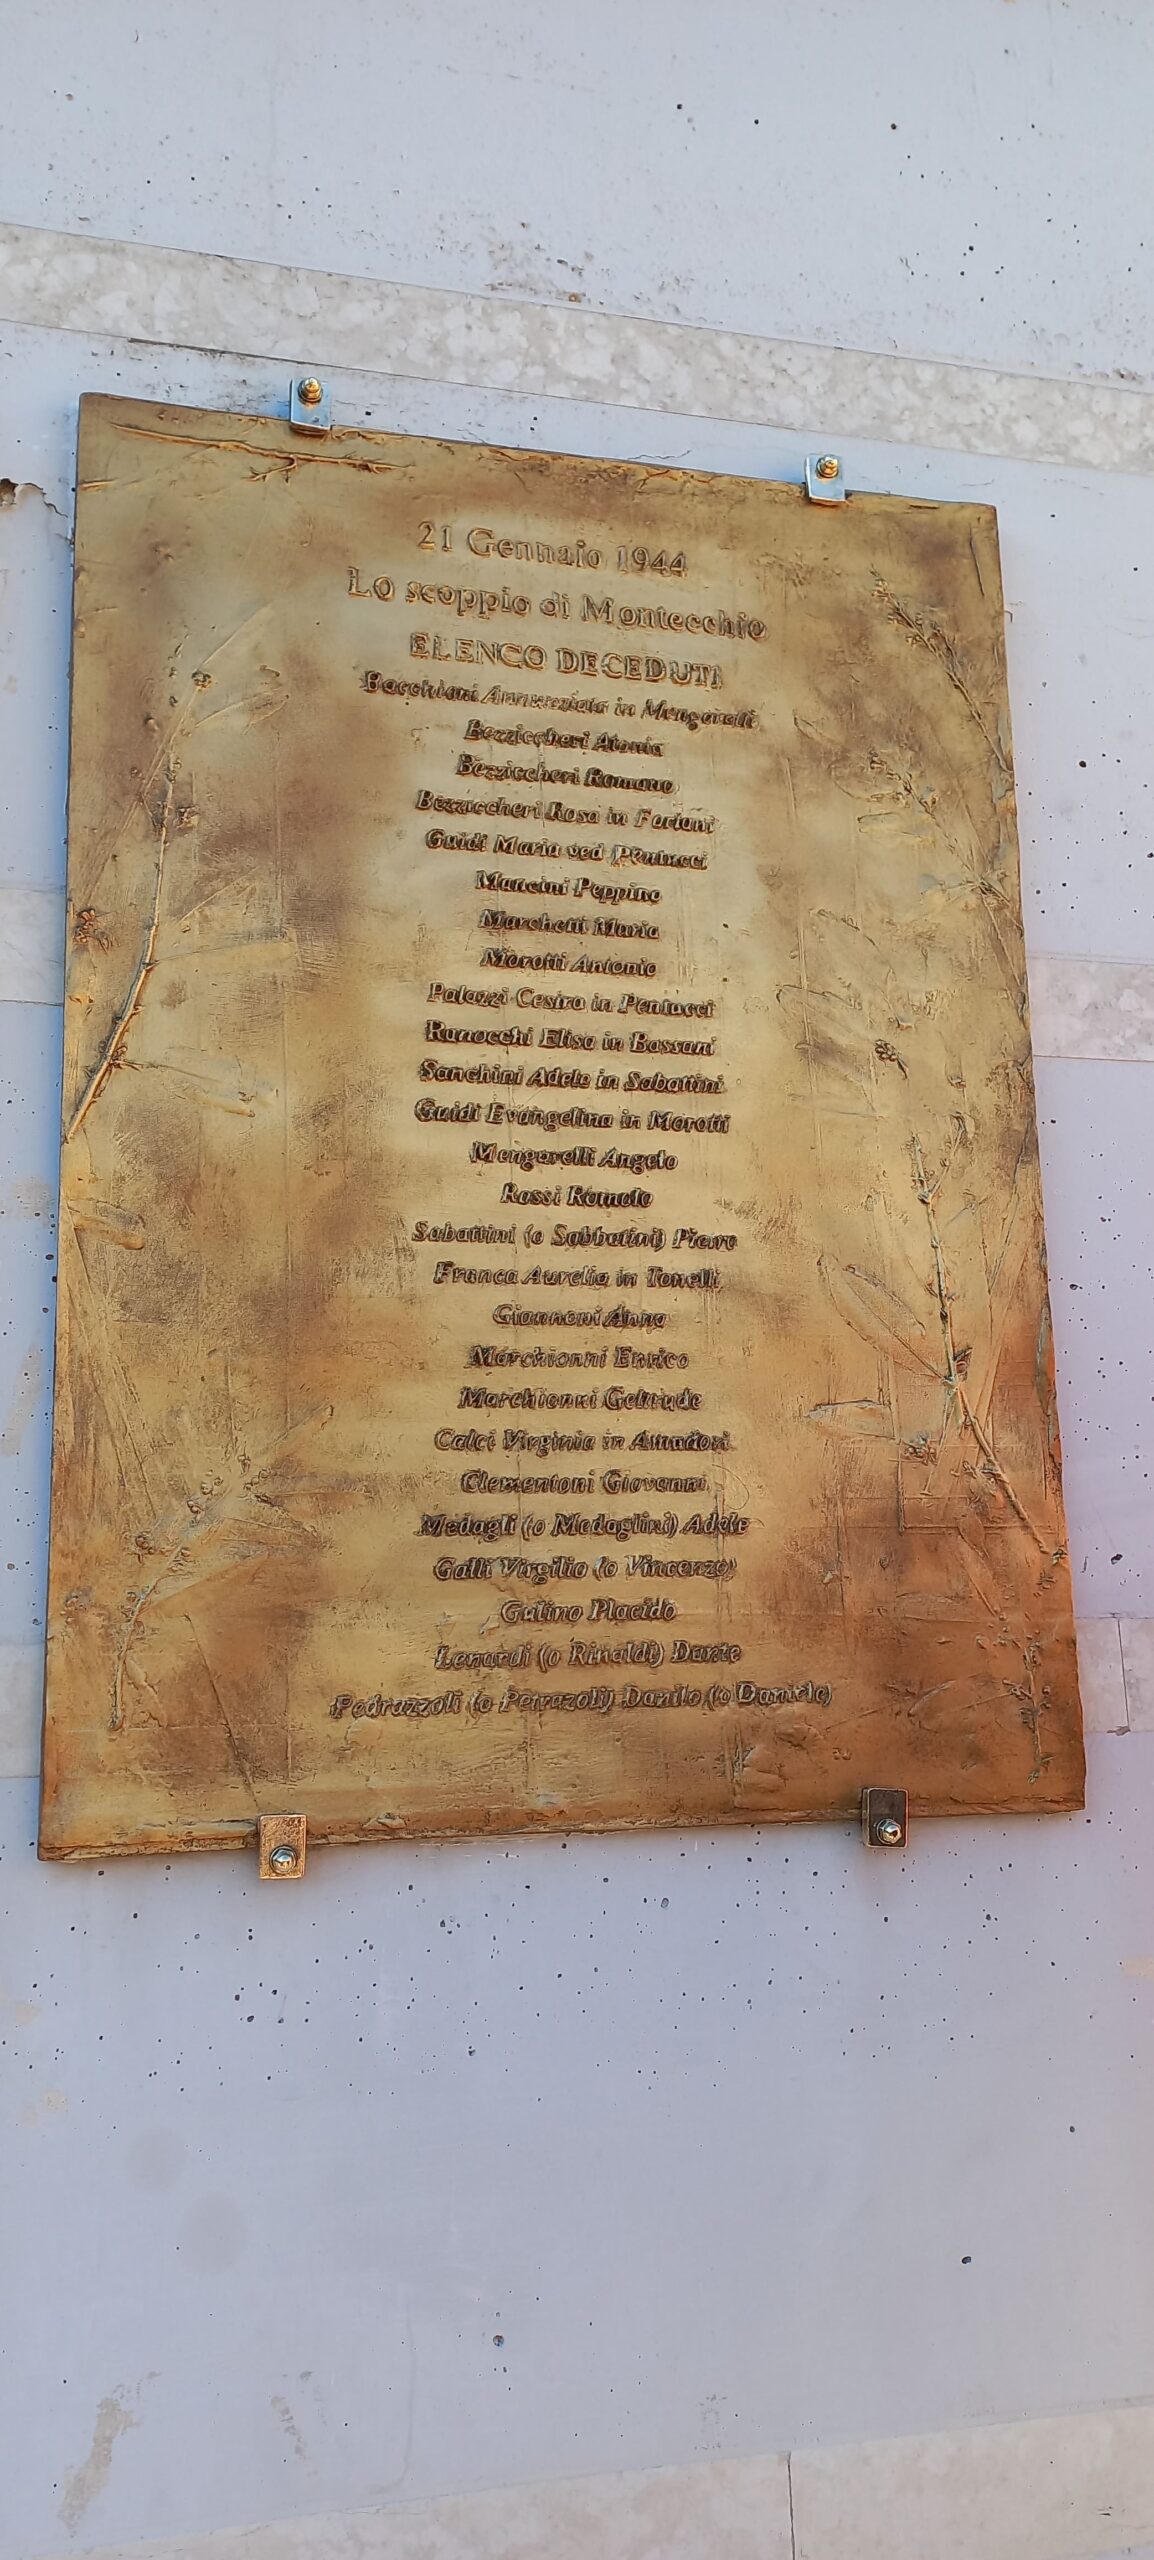 21 Gennaio 1944
Lo scoppio di Montecchio
ELENCO DECEDUTI
Bacchiani Annunziata in Mengarelli
Bezziccheri Atonia
Bezziccheri Romano
Bezziccheri Rosa in Foriani
Guidi Maria ved Pentucci
Mancini Peppino
Marchetti Maria
Morotti Antonio
Palazzi Cesira in Pentucci
Ranocchi Elisa in Bassani
Sanchini Adele in Sabattini
Guidi Evangelina in Morotti
Mengarelli Angelo
Rossi Romolo
Sabattini (o Sabbatini) Pierro
Franca Aurelia in Tonelli
Giannoni Anna
Marchionni Enrico
Marchionni Geltrude
Calci Virginia in Amadori
Clementoni Giovanni
Medagli (o Medaglini) Adele
Galli Virgilio (o Vincenzo)
Gulino Placido
Lenardi (o Rinaldi) Dante
Pedrazzoli (o Petrazoli) Danilo (o Daniele)